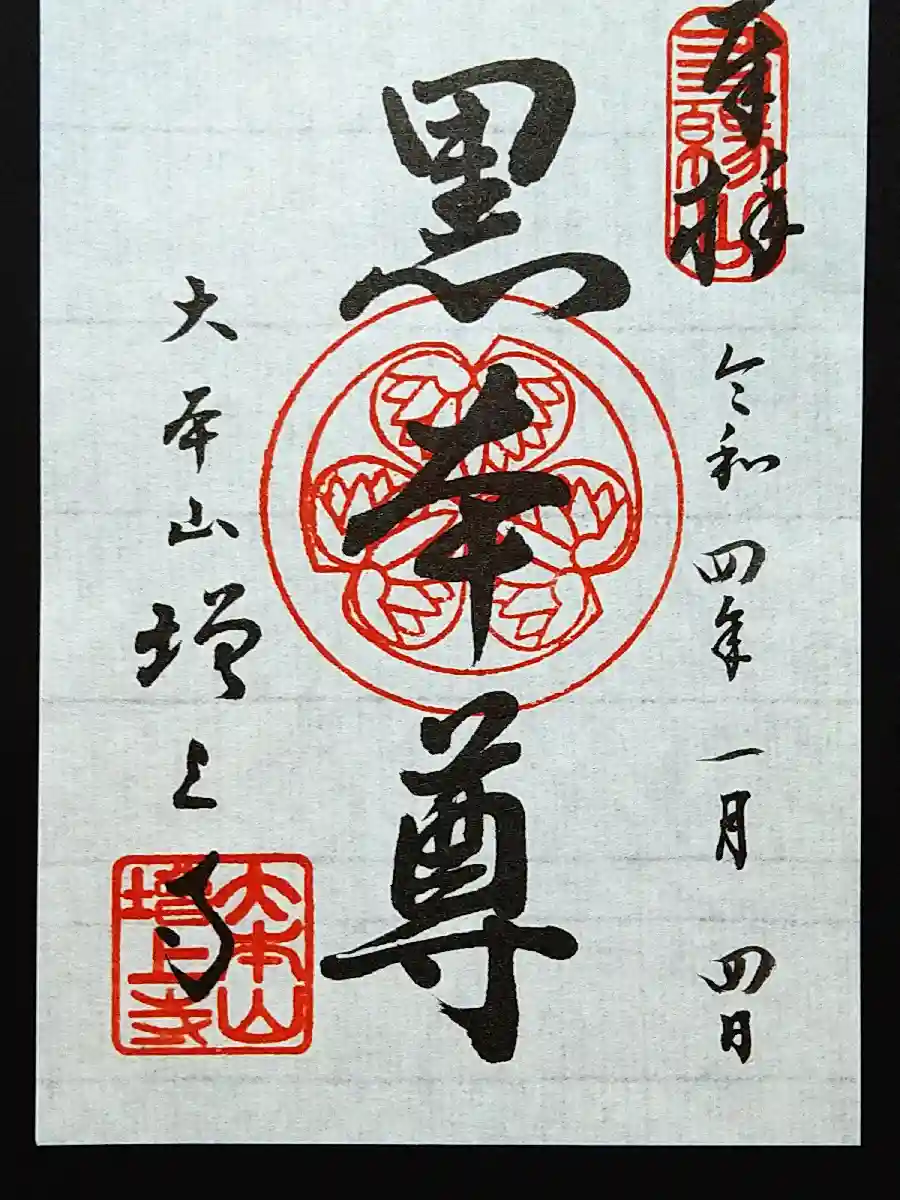 奉拝
三縁山
令和四年一月四日
黒本尊
大本山増上寺
大本山
増上寺